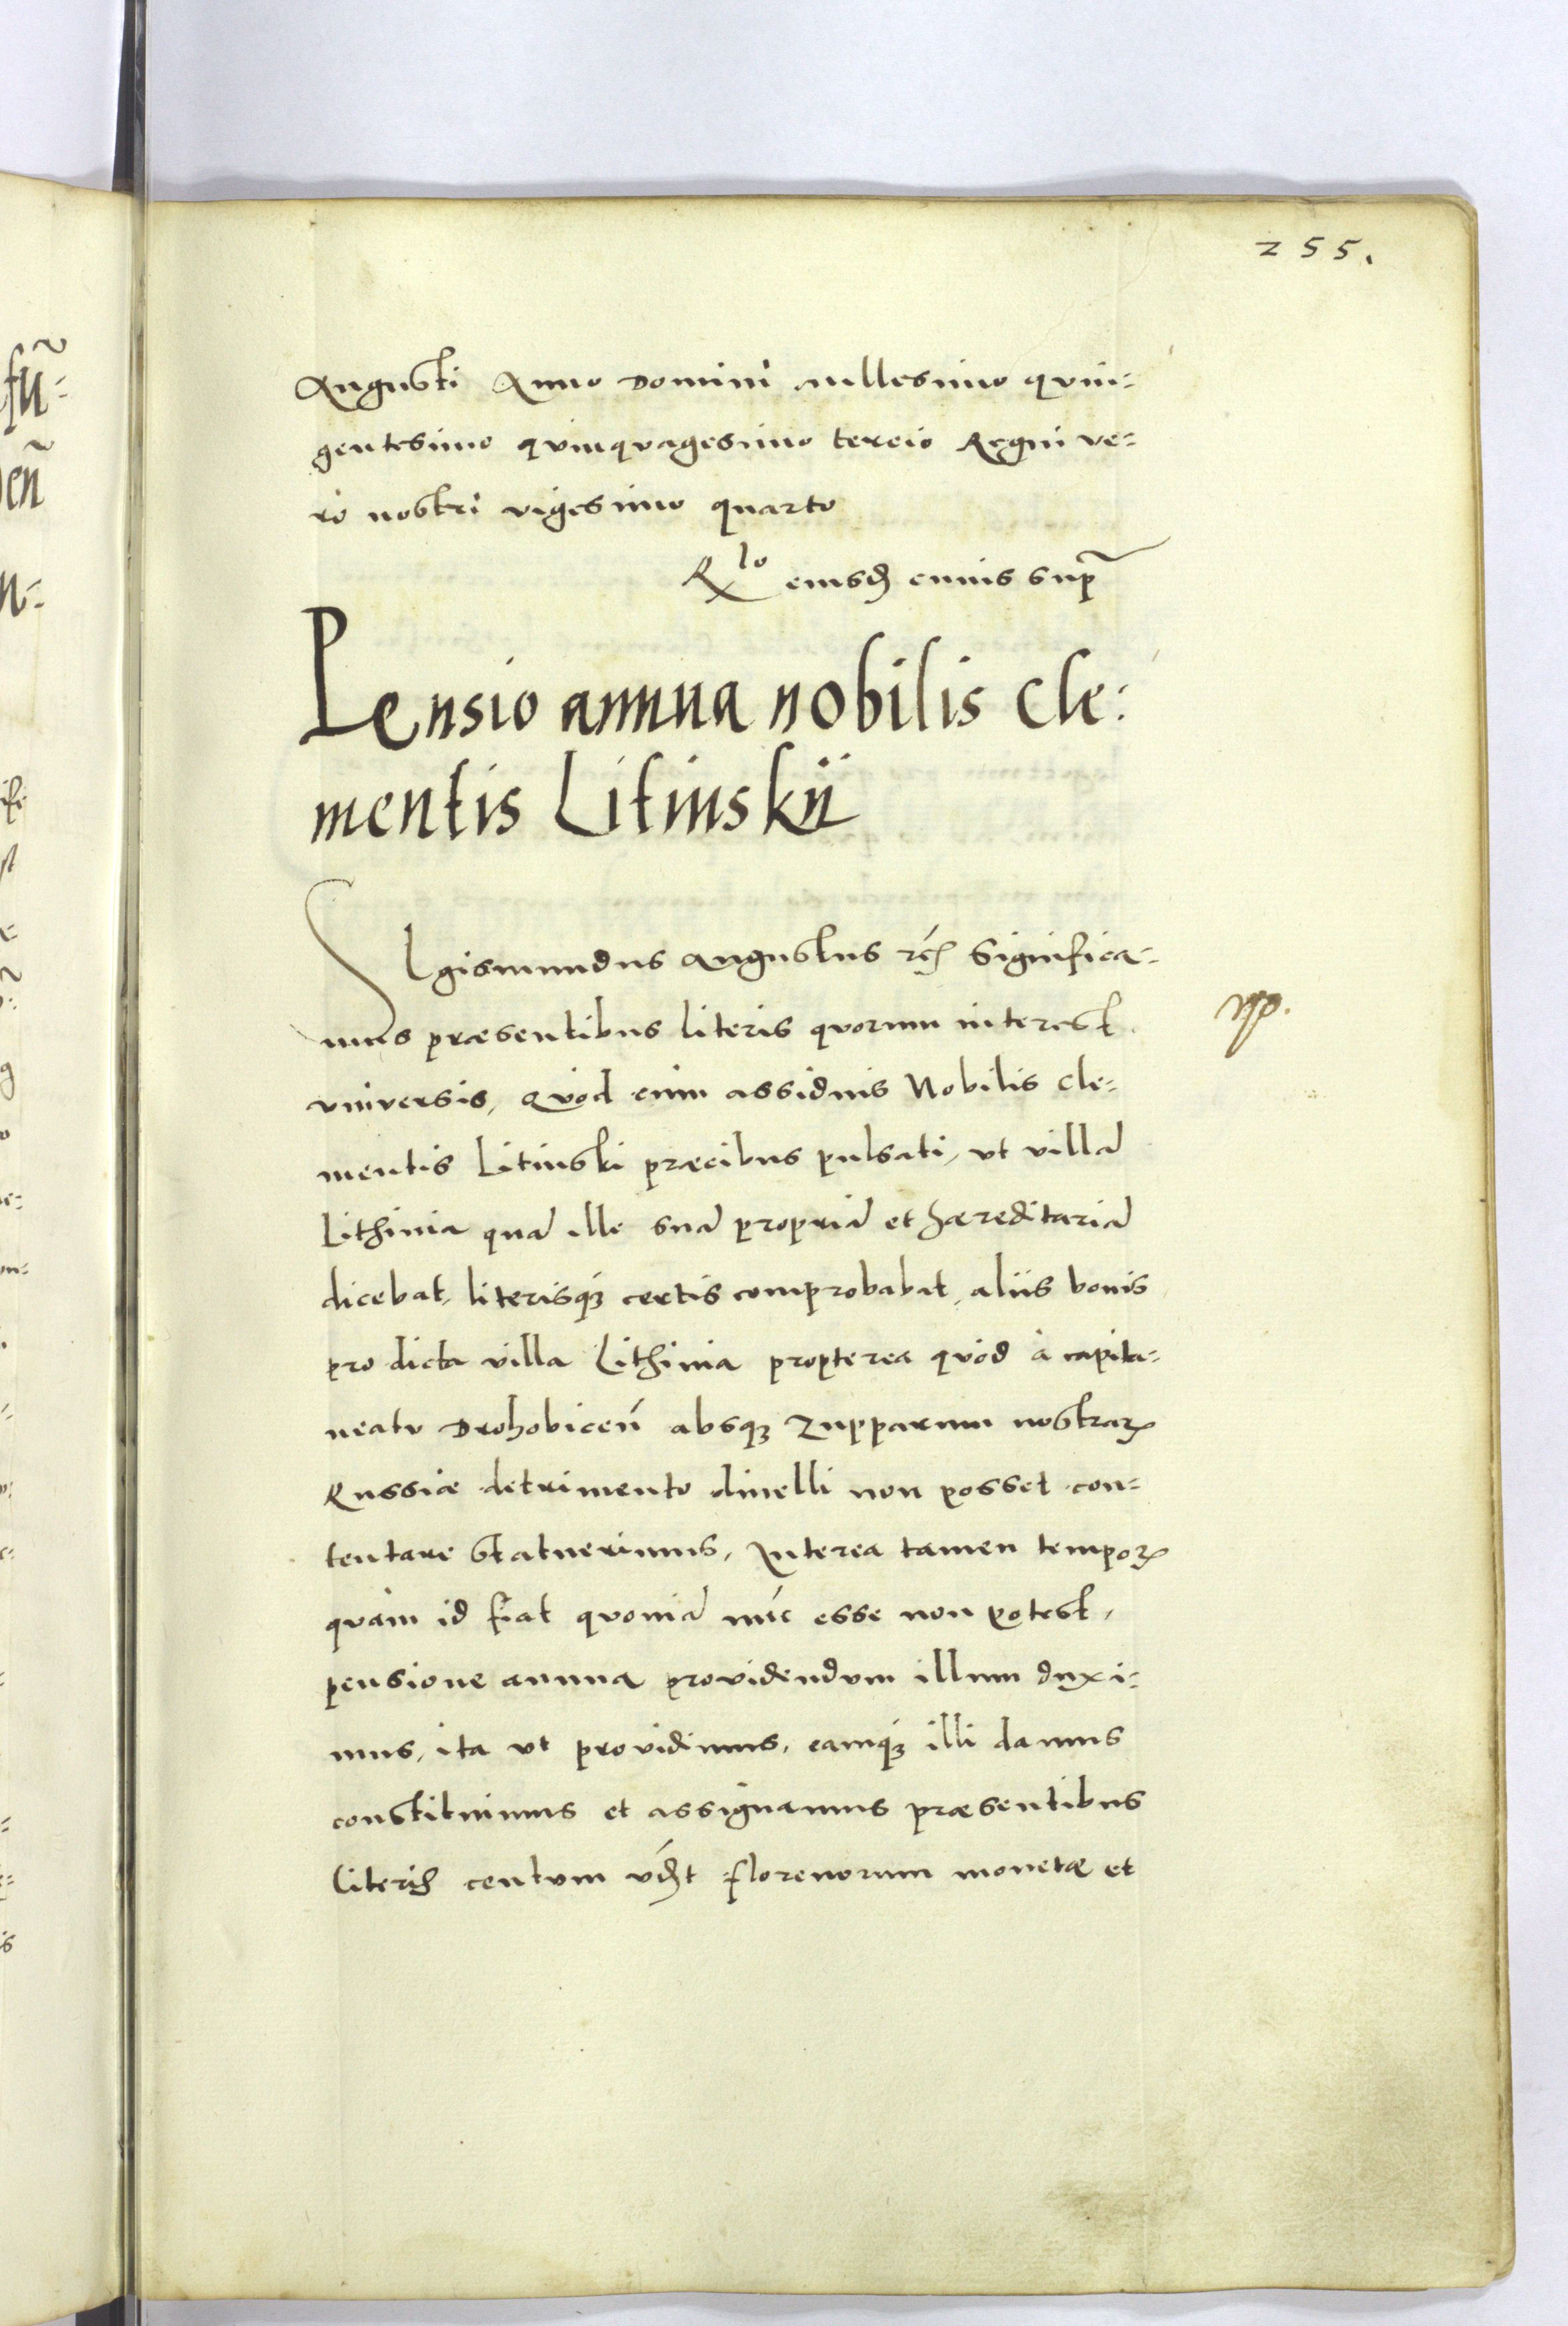 255.
Augusti Anno Domini millesimo quin=
gentesimo quinquagesimo tercio Regni ve=
ro nostri vigesimo quarto
R<sup>lo</sup> eiusd cuius supr
Pensio annua nobilis Cle:
mentis Litinskij
SIgismundus Augustus rc Significa=
mus præsentibus literis quorum interest
vniversis, Quod cum assiduis Nobilis Cle=
mentis Litinski præcibus pulsati, vt villā
Lithinia quā ille suā propriā et hæreditariā
dicebat, literisq3 certis comprobabat, aliis bonis
pro dicta villa Lithinia propterea quòd à capita=
neatu Drohobiceń absq3 Zupparum nostrarꝝ
Russiæ detrimento diuelli non posset con=
tentare statuerimus, Interea tamen temporꝭ
quàm id fiat quoniā nūc esse non potest,
pensione annua providendum illum duxi=
mus, ita vt providimus, eamq3 illi damus
constituimus et assignamus præsentibus
literis centum vdꝫt florenorum monetæ et